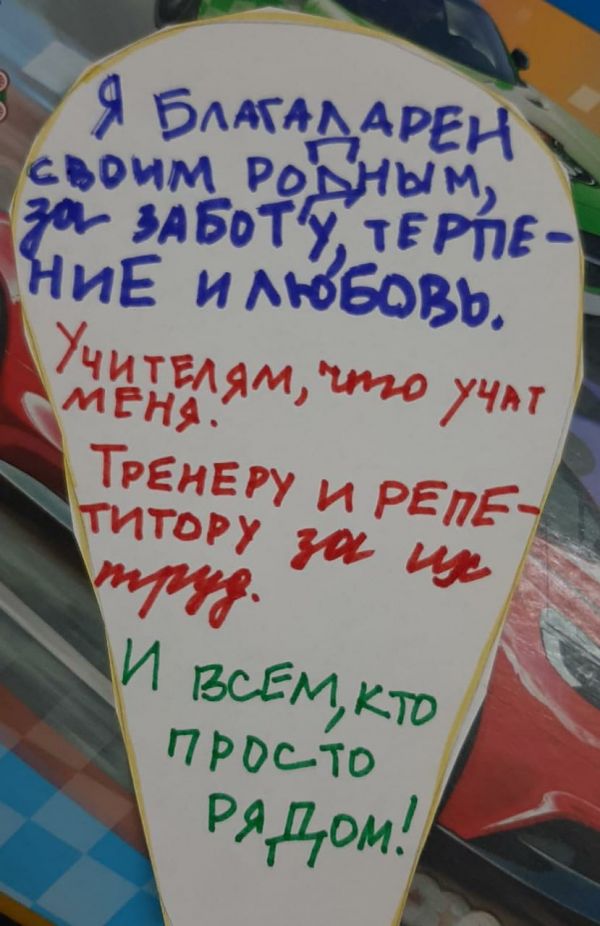 Я БЛАГАДАРЕН
СВОИМ РОДНЫМ,
за ЗАБОТУ, ТЕРПЕ-
НИЕ И ЛЮБОВЬ.
УЧИТЕЛЯМ, что УЧАТ
МЕНЯ.
ТРЕНЕРУ И РЕПЕ-
ТИТОРУ за их
труд.
И ВСЕМ, КТО
ПРОСТО
РЯДОМ!